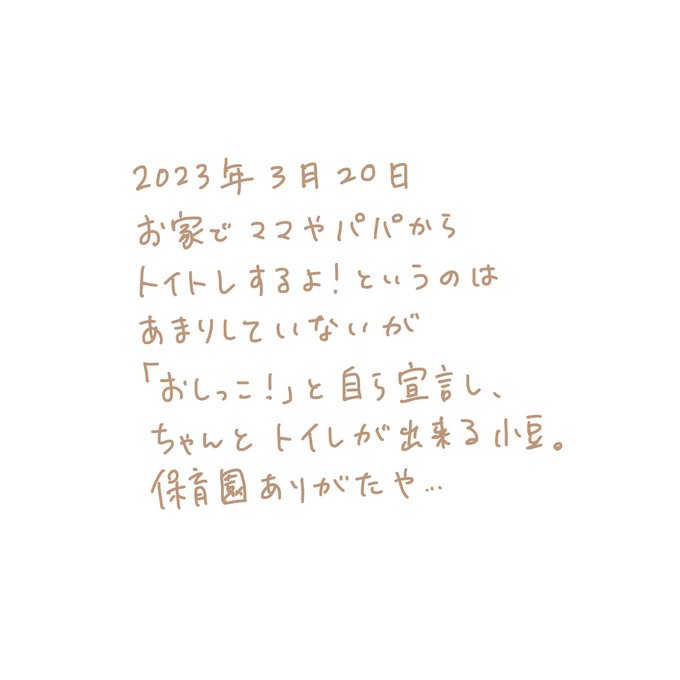 2023年3月20日
お家でママやパパから
トイトレするよ!というのは
あまりしていないが
「おしっこ!」と自ら宣言し、
ちゃんとトイレが出来る小豆。
保育園ありがたや…